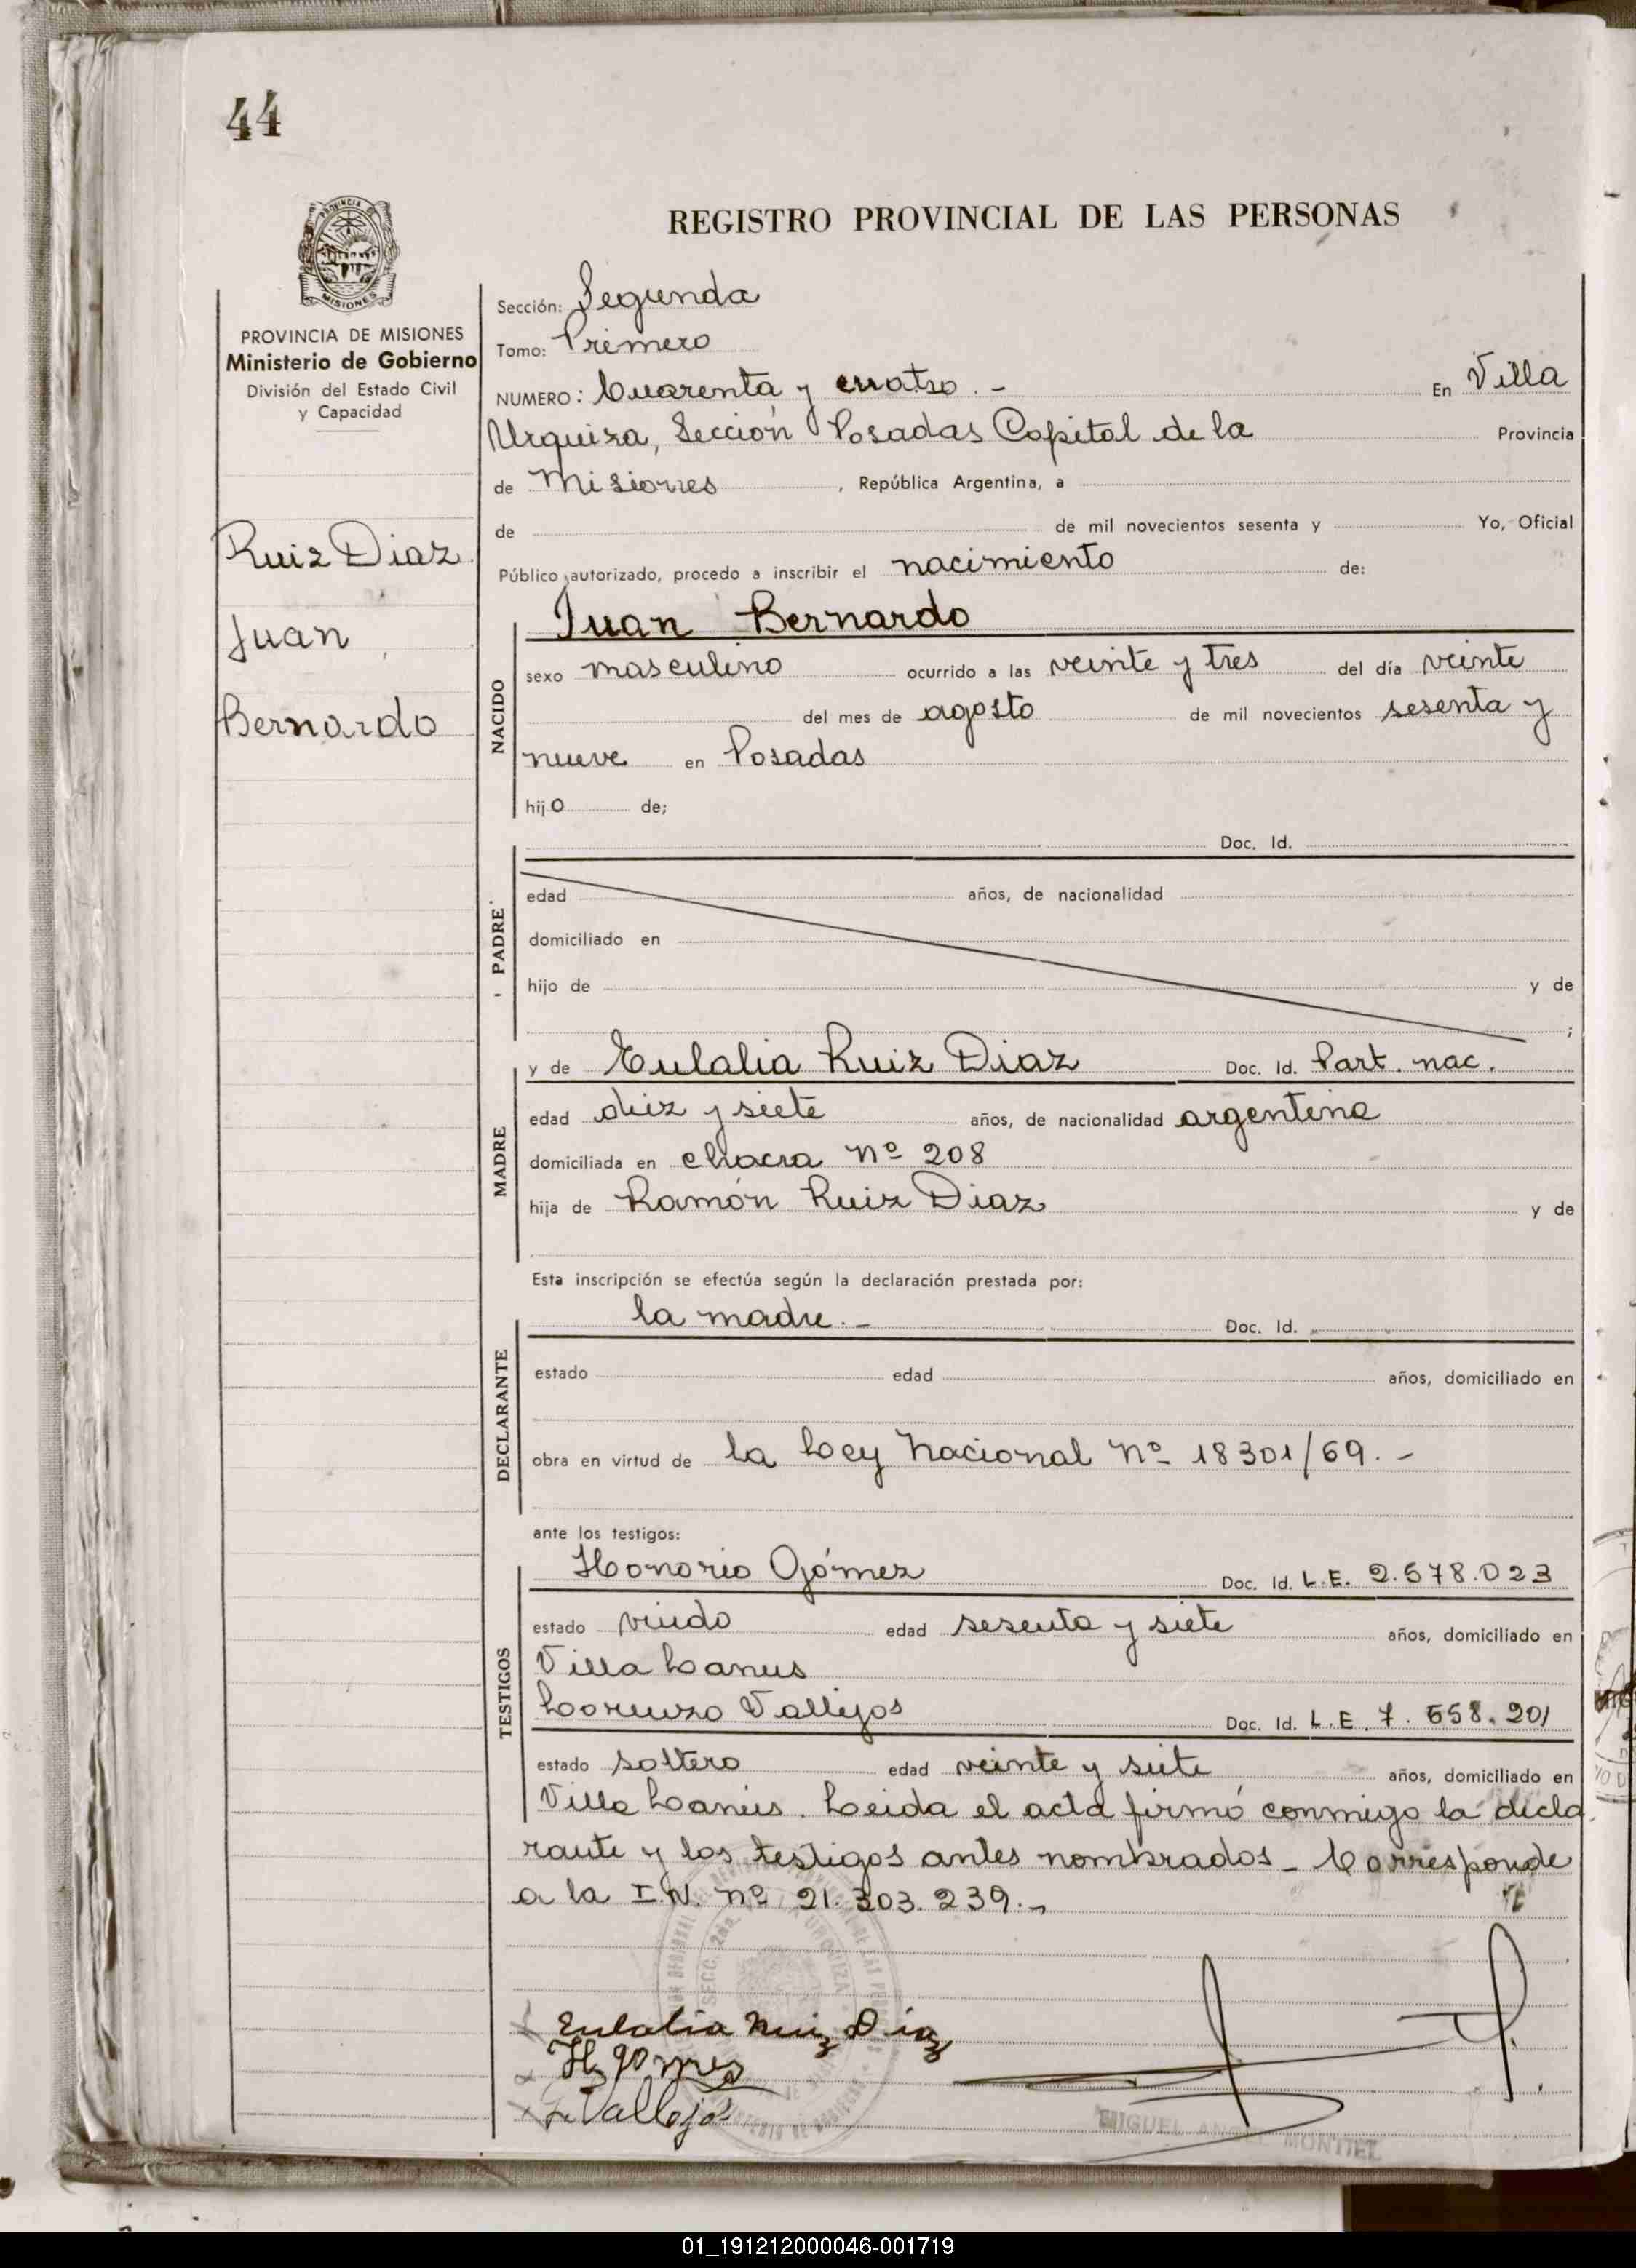 44
REGISTRO PROVINCIAL DE LAS PERSONAS
PROVINCIA DE
MISIONES
PROVINCIA DE MISIONES
Ministerio de Gobierno
División del Estado Civil
y Capacidad
Ruiz Diaz
Juan
Bernardo
Sección: Segunda
Tomo: Primero
NUMERO: Cuarenta y cuatro.- En Villa
Urquiza, Sección Posadas Capital de la Provincia
de Misiones, República Argentina, a
de de mil novecientos sesenta y Yo, Oficial
Público autorizado, procedo a inscribir el nacimiento de:
NACIDO
Juan Bernardo
sexo masculino ocurrido a las veinte y tres del día veinte
del mes de agosto de mil novecientos sesenta y
nueve en Posadas
hijo de;
PADRE
Doc. Id.
edad años, de nacionalidad
domiciliado en
hijo de y de
;
MADRE
y de Eulalia Ruiz Diaz Doc. Id. Part. nac.
edad diez y siete años, de nacionalidad argentina
domiciliada en chacra Nº 208
hija de Ramón Ruiz Diaz y de
Esta inscripción se efectúa según la declaración prestada por:
DECLARANTE
la madre.- Doc. Id.
estado edad años, domiciliado en
obra en virtud de la Ley Nacional Nº 18301/69.-
ante los testigos:
TESTIGOS
Honorio Gómez Doc. Id. L.E. 2.678.023
estado viudo edad sesenta y siete años, domiciliado en
Villa Lanus
Lorenzo Vallejos Doc. Id. L.E. 7.558.201
estado soltero edad veinte y siete años, domiciliado en
Villa Lanús. Leida el acta firmó conmigo la decla
rante y los testigos antes nombrados_ Corresponde
a la I.N. nº 21.303.239.-
Eulalia Ruiz Diaz
H gomes
L Vallejos
MIGUEL ANGEL MONTIEL
01_191212000046-001719